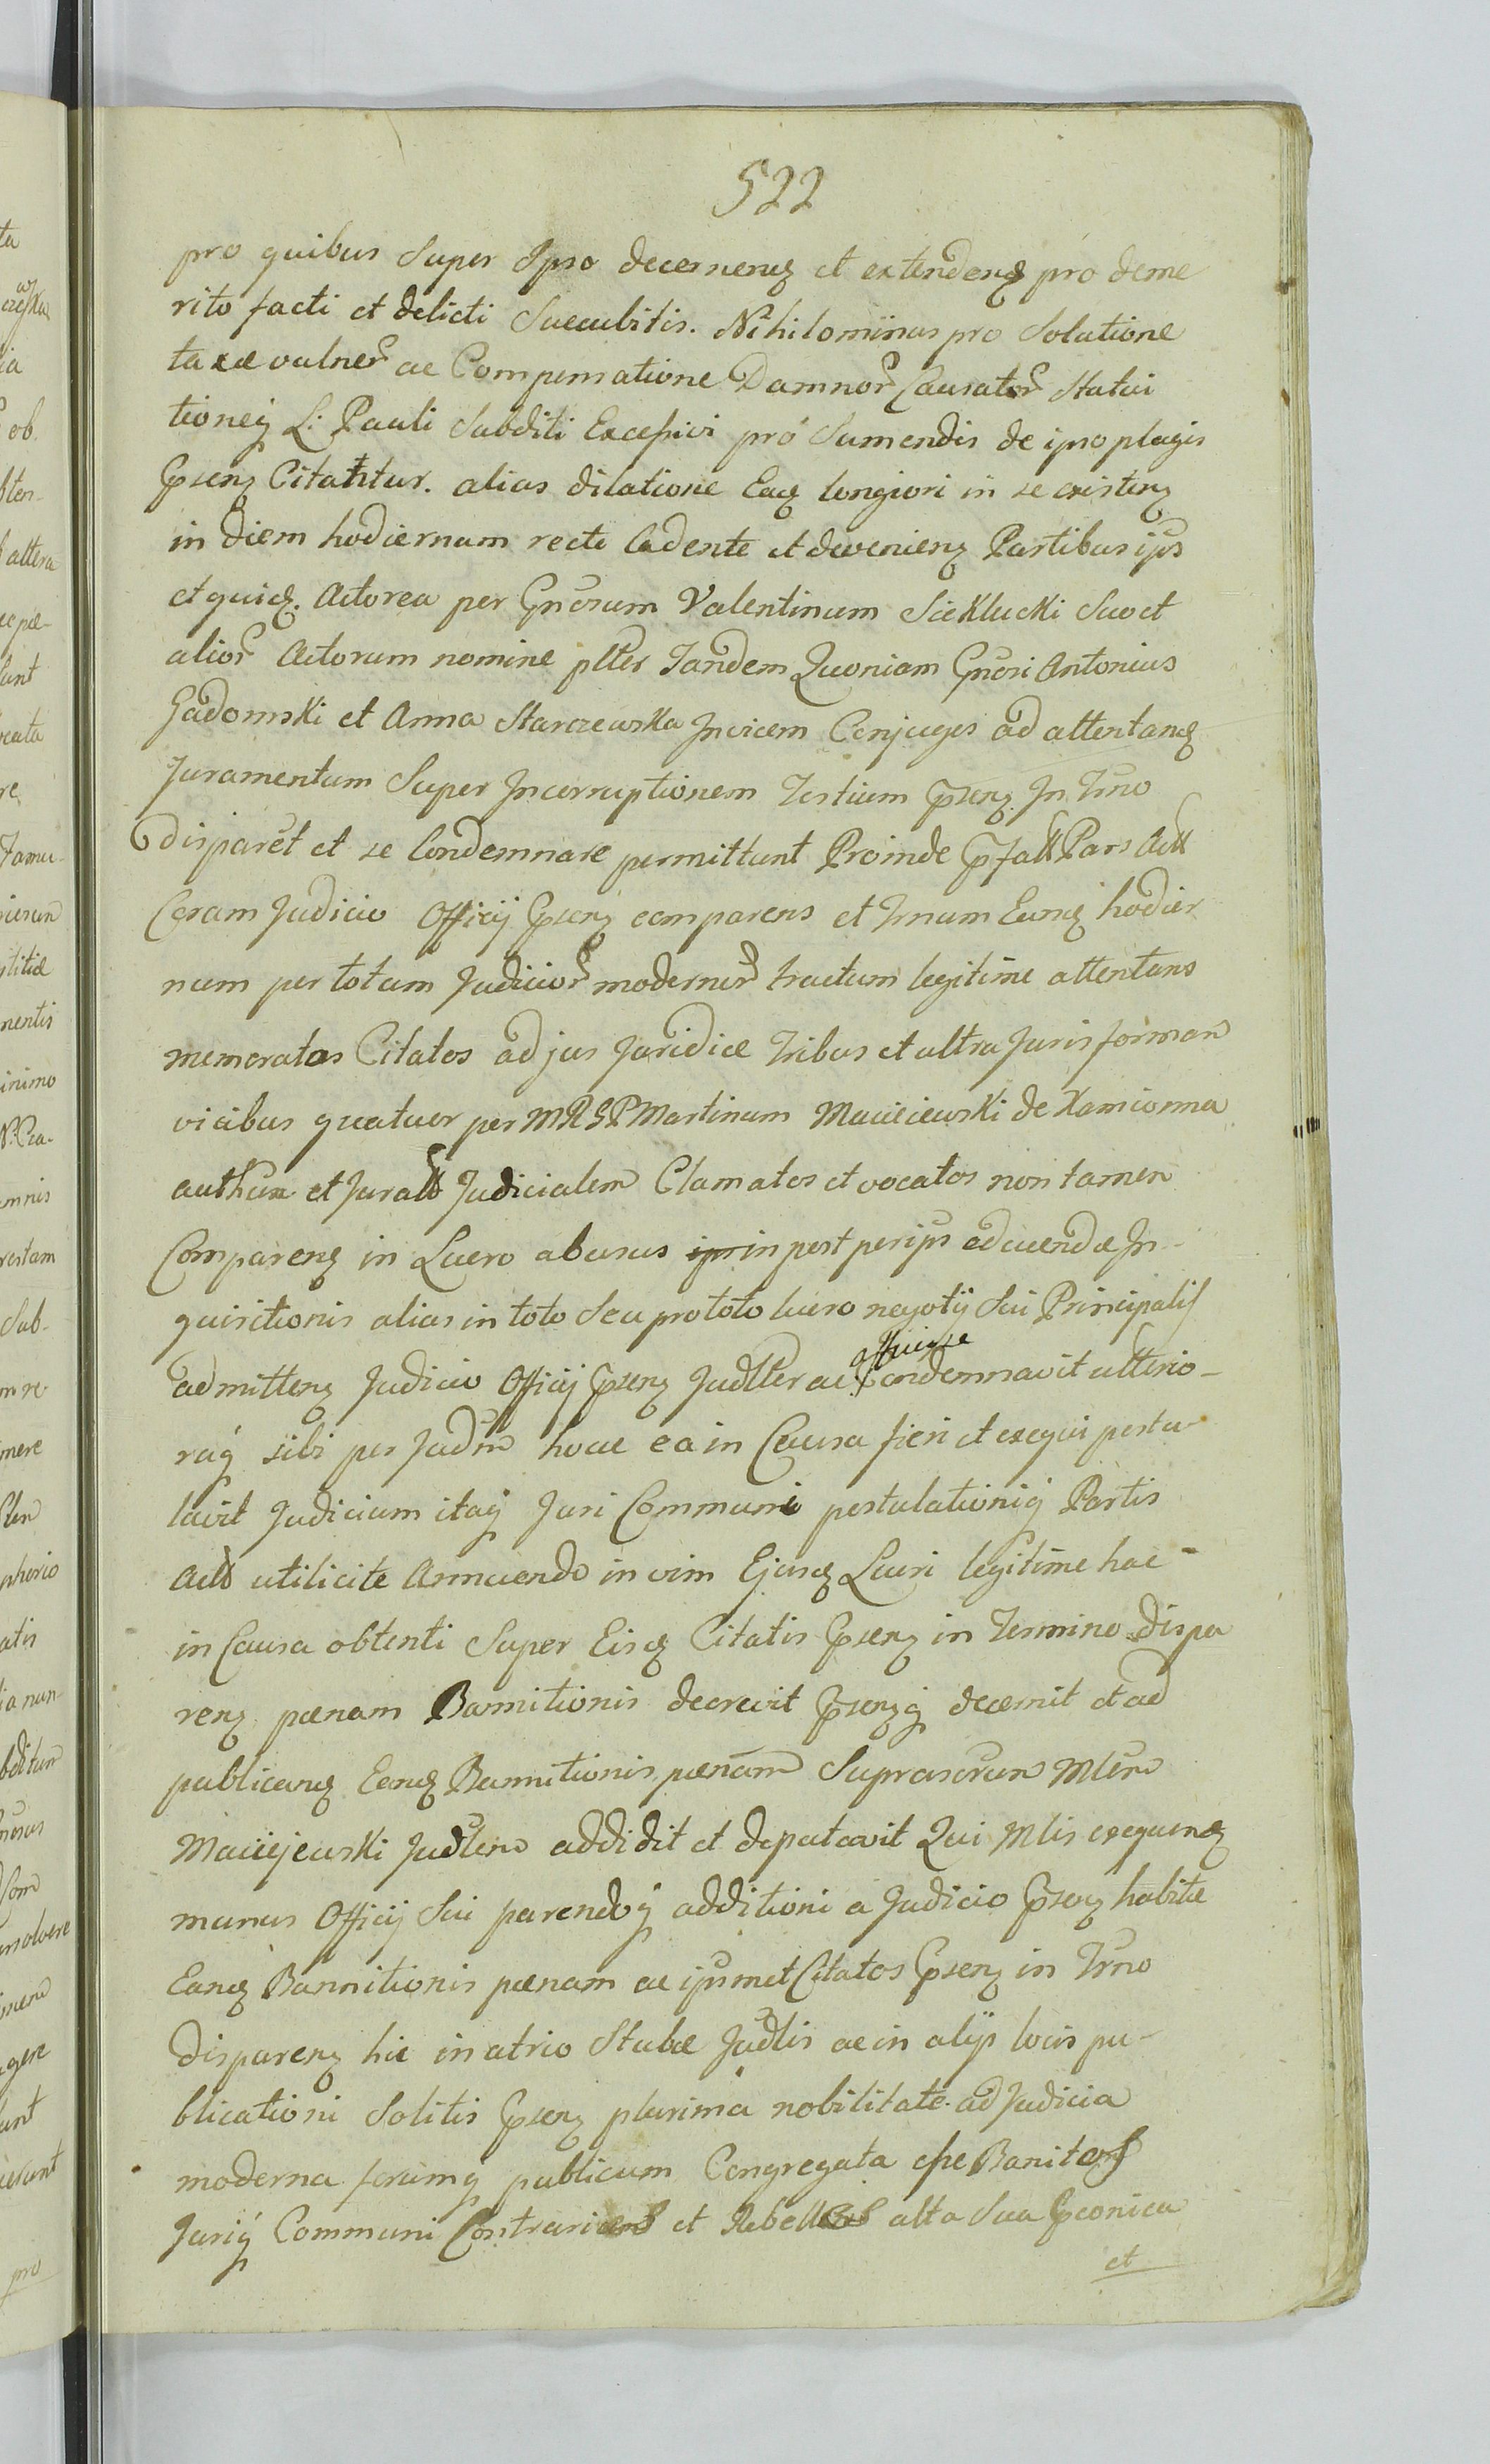 522
pro quibus Super Ipso decernenq et extendenq pro deme
rito facti et delicti Succubitis. Nihilominus pro Solutione
taxæ vulner ac Compensatione Damnor Causator Statui
tioneq L: Pauli Subditi Excessivi pro Sumendis de ipso plagis
Pnsenz Citantur. alias dilatione Eaq longiori in se existenz
in diem hodiernam recte Cadente et devenienz Partibus ips
et quiq. Actorea per Gnosum Valentinum Sieklucki Suo et
alior Actorum nomine plter Tandem Quoniam Gnosi Antonius
Gadomski et Anna Starczewska Invicem Conjuges ad attentanq
Juramentum Super Incorruptionem Testium Pnsenz In Trno
disparet et se Condemnare permittunt Proinde Pfatt Pars Actt
Coram Judicio Officij Pnsenz comparens et Trnum Eunq hodier
num per totum Judicior modernor tractum legitime attentans
memoratos Citatos ad jus Juridice tribus et ultra Juris forman
vicibus quatuor per MRGP Martinum Maciejewski de Kamionna
authen et Juratt Judicialem Clamatos et vocatos non tamen
Comparenq in Lucro abusus in post per ips educendæ In
quisitionis alias in toto Seu pro toto lucro negotij Sui Principalis
admittenz Judicio Officij Pnsenz Judtter ac affuisse Condemnavit ulterio-
raq sibi per Judm hocce ea in Causa fieri et exequi postu
lavit Judicium itaq Juri Communi postulationiq Partis
Actt utilicite Annuendo in vim Ejusq Lucri legitime hac
in Causa obtenti Super Eisq Citatis Pnsenz in Termino dispa
renz pænam Bannitionis decrevit Pnsenzq decernit et ad
publicanq Eanq Bannitionis pænam Suprascrum Mlem
Maciejewski Judlem addidit et deputavit Qui Mlis exequenq
munus Officij Sui parendoq additioni a Judicio Pnsenz habitæ
Eanq Bannitionis pænam ac ipsmet Citatos Pnsenz in Trno
disparenz hic in atrio Stubæ Judlis ac in alijs locis pu-
blicationi Solitis Pnsenz plurima nobilitate ad Judicia
moderna forumq publicum Congregata esse Banitos
Juriq Communi Contrarios et Rebelles alta Sua Pconica
et